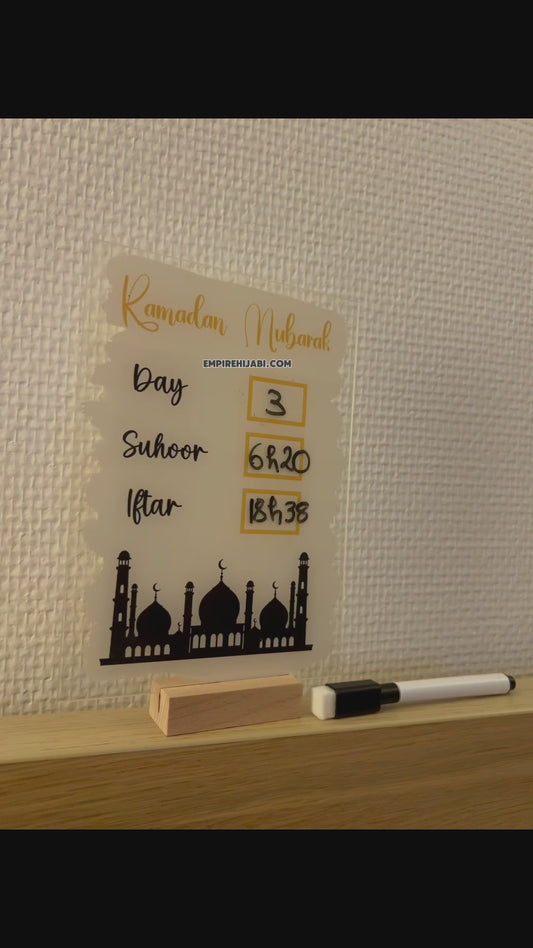 Ramadan Mubarak
EMPIREHIJABI.COM
Day 3
Suhoor 6h20
Iftar 18h38